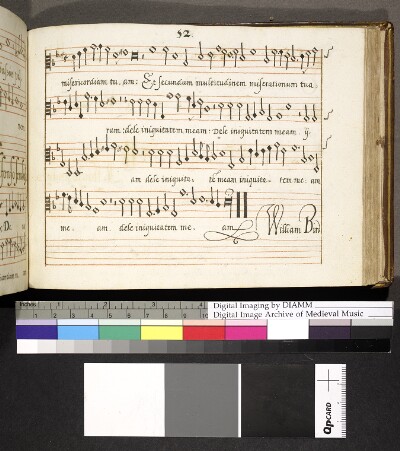 52
misericordiam tu, am: Et secundum multitudinem miserationum tua,
rum: dele iniquitatem meam: Dele iniquitatem meam ij
am dele iniquita, te meam iniquita, tem me, am
me, am. dele iniquitatem me, am. William Bird
inches 1 2 3
Digital Imaging by DIAMM
Digital Image Archive of Medieval Music
QPCARD